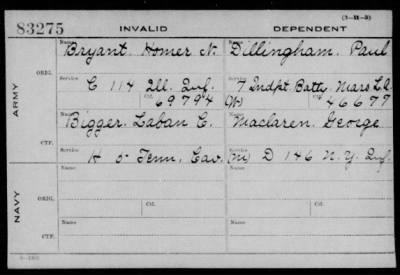 (3—II—3)
83275 INVALID DEPENDENT
ARMY
ORIG.
Name Bryant, Homer N.
Service C 114 Ill. Inf.
Ctf. 69794
Name Dillingham, Paul
Service 7 Indpt. Batty. Mass L.A.
(W) Ctf. 46677
CTF.
Name Bigger, Laban C.
Service H 5 Tenn. Cav.
Name Maclaren, George
Service (M) D 146 N.Y. Inf.
NAVY
ORIG.
Name
Service Ctf.
Name
Service Ctf.
CTF.
Name
Service
Name
Service